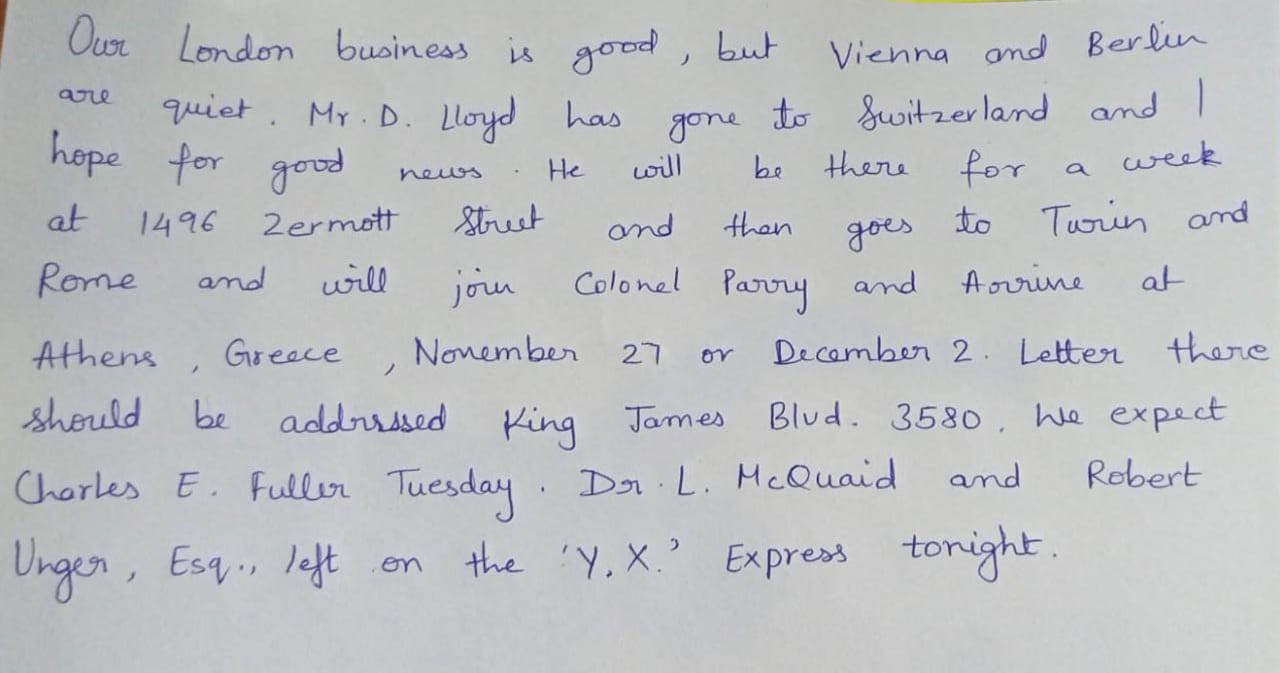 Our London business is good, but Vienna and Berlin
are quiet. Mr. D. Lloyd has gone to Switzerland and I
hope for good news. He will be there for a week
at 1496 Zermott Street and then goes to Turin and
Rome and will join Colonel Parry and Arrine at
Athens, Greece, November 27 or December 2. Letter there
should be addressed King James Blvd. 3580. We expect
Charles E. Fuller Tuesday. Dr. L. McQuaid and Robert
Unger, Esq., left on the 'Y.X.' Express tonight.